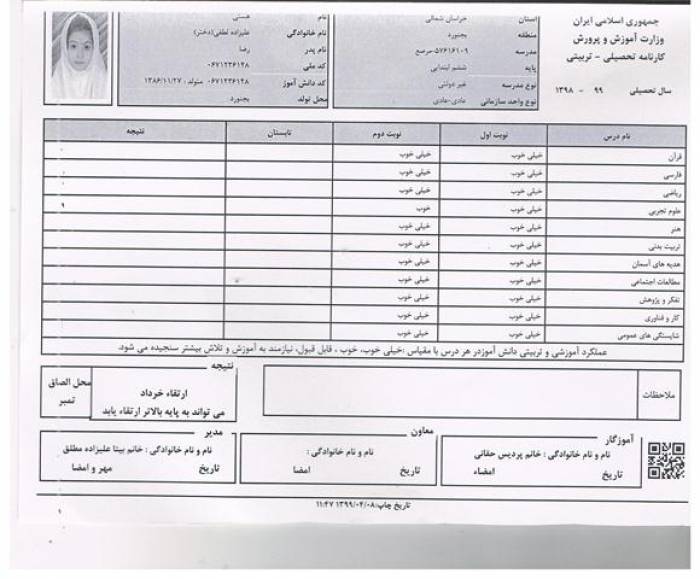 جمهوری اسلامی ایران
وزارت آموزش و پرورش
کارنامه تحصیلی - تربیتی
سال تحصیلی ۹۹ - ۱۳۹۸
استان خراسان شمالی
منطقه بجنورد
مدرسه ۵۷۶۱۶۱۰۹-
پایه ششم ابتدایی
نوع مدرسه غیر دولتی
نوع واحد سازمانی عادی-عادی
نام هستی
نام خانوادگی علیزاده لطفی(دختر)
نام پدر رضا
کد ملی ۰۶۷۱۲۳۶۱۲۸
کد دانش آموز ۰۶۷۱۲۳۶۱۲۸ متولد: ۱۳۸۶/۱۱/۲۷
محل تولد بجنورد
نام درس نوبت اول نوبت دوم تابستان نتیجه
قرآن خیلی خوب خیلی خوب
فارسی خیلی خوب خیلی خوب
ریاضی خیلی خوب خیلی خوب
علوم تجربی خیلی خوب خوب
هنر خیلی خوب خیلی خوب
تربیت بدنی خیلی خوب خیلی خوب
هدیه های آسمان خیلی خوب خیلی خوب
مطالعات اجتماعی خیلی خوب خیلی خوب
تفکر و پژوهش خیلی خوب خیلی خوب
کار و فناوری خیلی خوب خیلی خوب
شایستگی های عمومی خیلی خوب خیلی خوب
عملکرد آموزشی و تربیتی دانش آموزدر هر درس با مقیاس :خیلی خوب، خوب ، قابل قبول، نیازمند به آموزش و تلاش بیشتر سنجیده می شود.
ملاحظات
نتیجه
ارتقاء خرداد
می تواند به پایه بالاتر ارتقاء یابد
محل الصاق
تمبر
آموزگار
نام و نام خانوادگی : خانم پردیس حقانی
تاریخ امضاء
معاون
نام و نام خانوادگی :
تاریخ امضا
مدیر
نام و نام خانوادگی : خانم بیتا علیزاده مطلق
تاریخ مهر و امضا
تاریخ چاپ:۱۳۹۹/۰۴/۰۸ ۱۱:۴۷